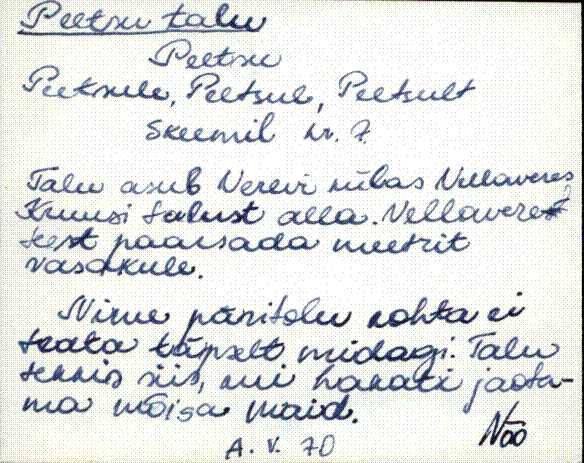 Peetsu talu
Peetsu
Peetsule, Peetsul, Peetsult
Skeemil nr. 7.
Talu asub Nerevi külas Vellaveres,
Kruusi talust alla. Vellavere
teest paarsada meetrit
vasakule.
Nime päritolu kohta ei
teata täpselt midagi. Talu
tekkis siis, kui hakati jaota-
ma mõisa maid.
Nõo
A. V. 70